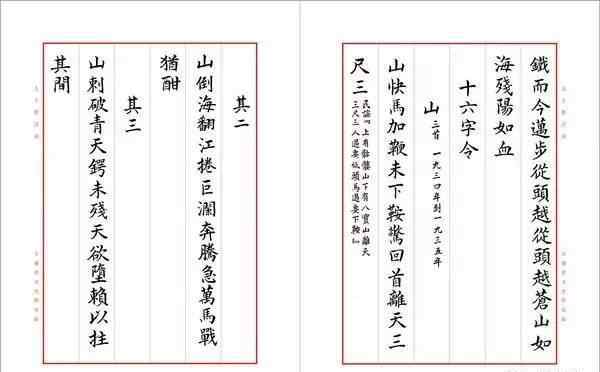 鐵而今邁步從頭越從頭越蒼山如
海殘陽如血
十六字令
山 三首 一九三四年到一九三五年
山快馬加鞭未下鞍驚回首離天三
尺三
民謠『上有骷髏山下有八寶山離天
三尺三人過要低頭馬過要下鞍』
其二
山倒海翻江捲巨瀾奔騰急萬馬戰
猶酣
其三
山刺破青天鍔未殘天欲墮賴以拄
其間